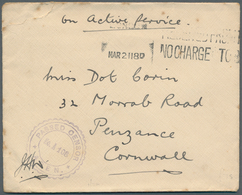 on Active Service.
MAR 21 18
NO CHARGE TO
Miss Dot Corin
32 Morrab Road
Penzance
Cornwall
PASSED CENSOR